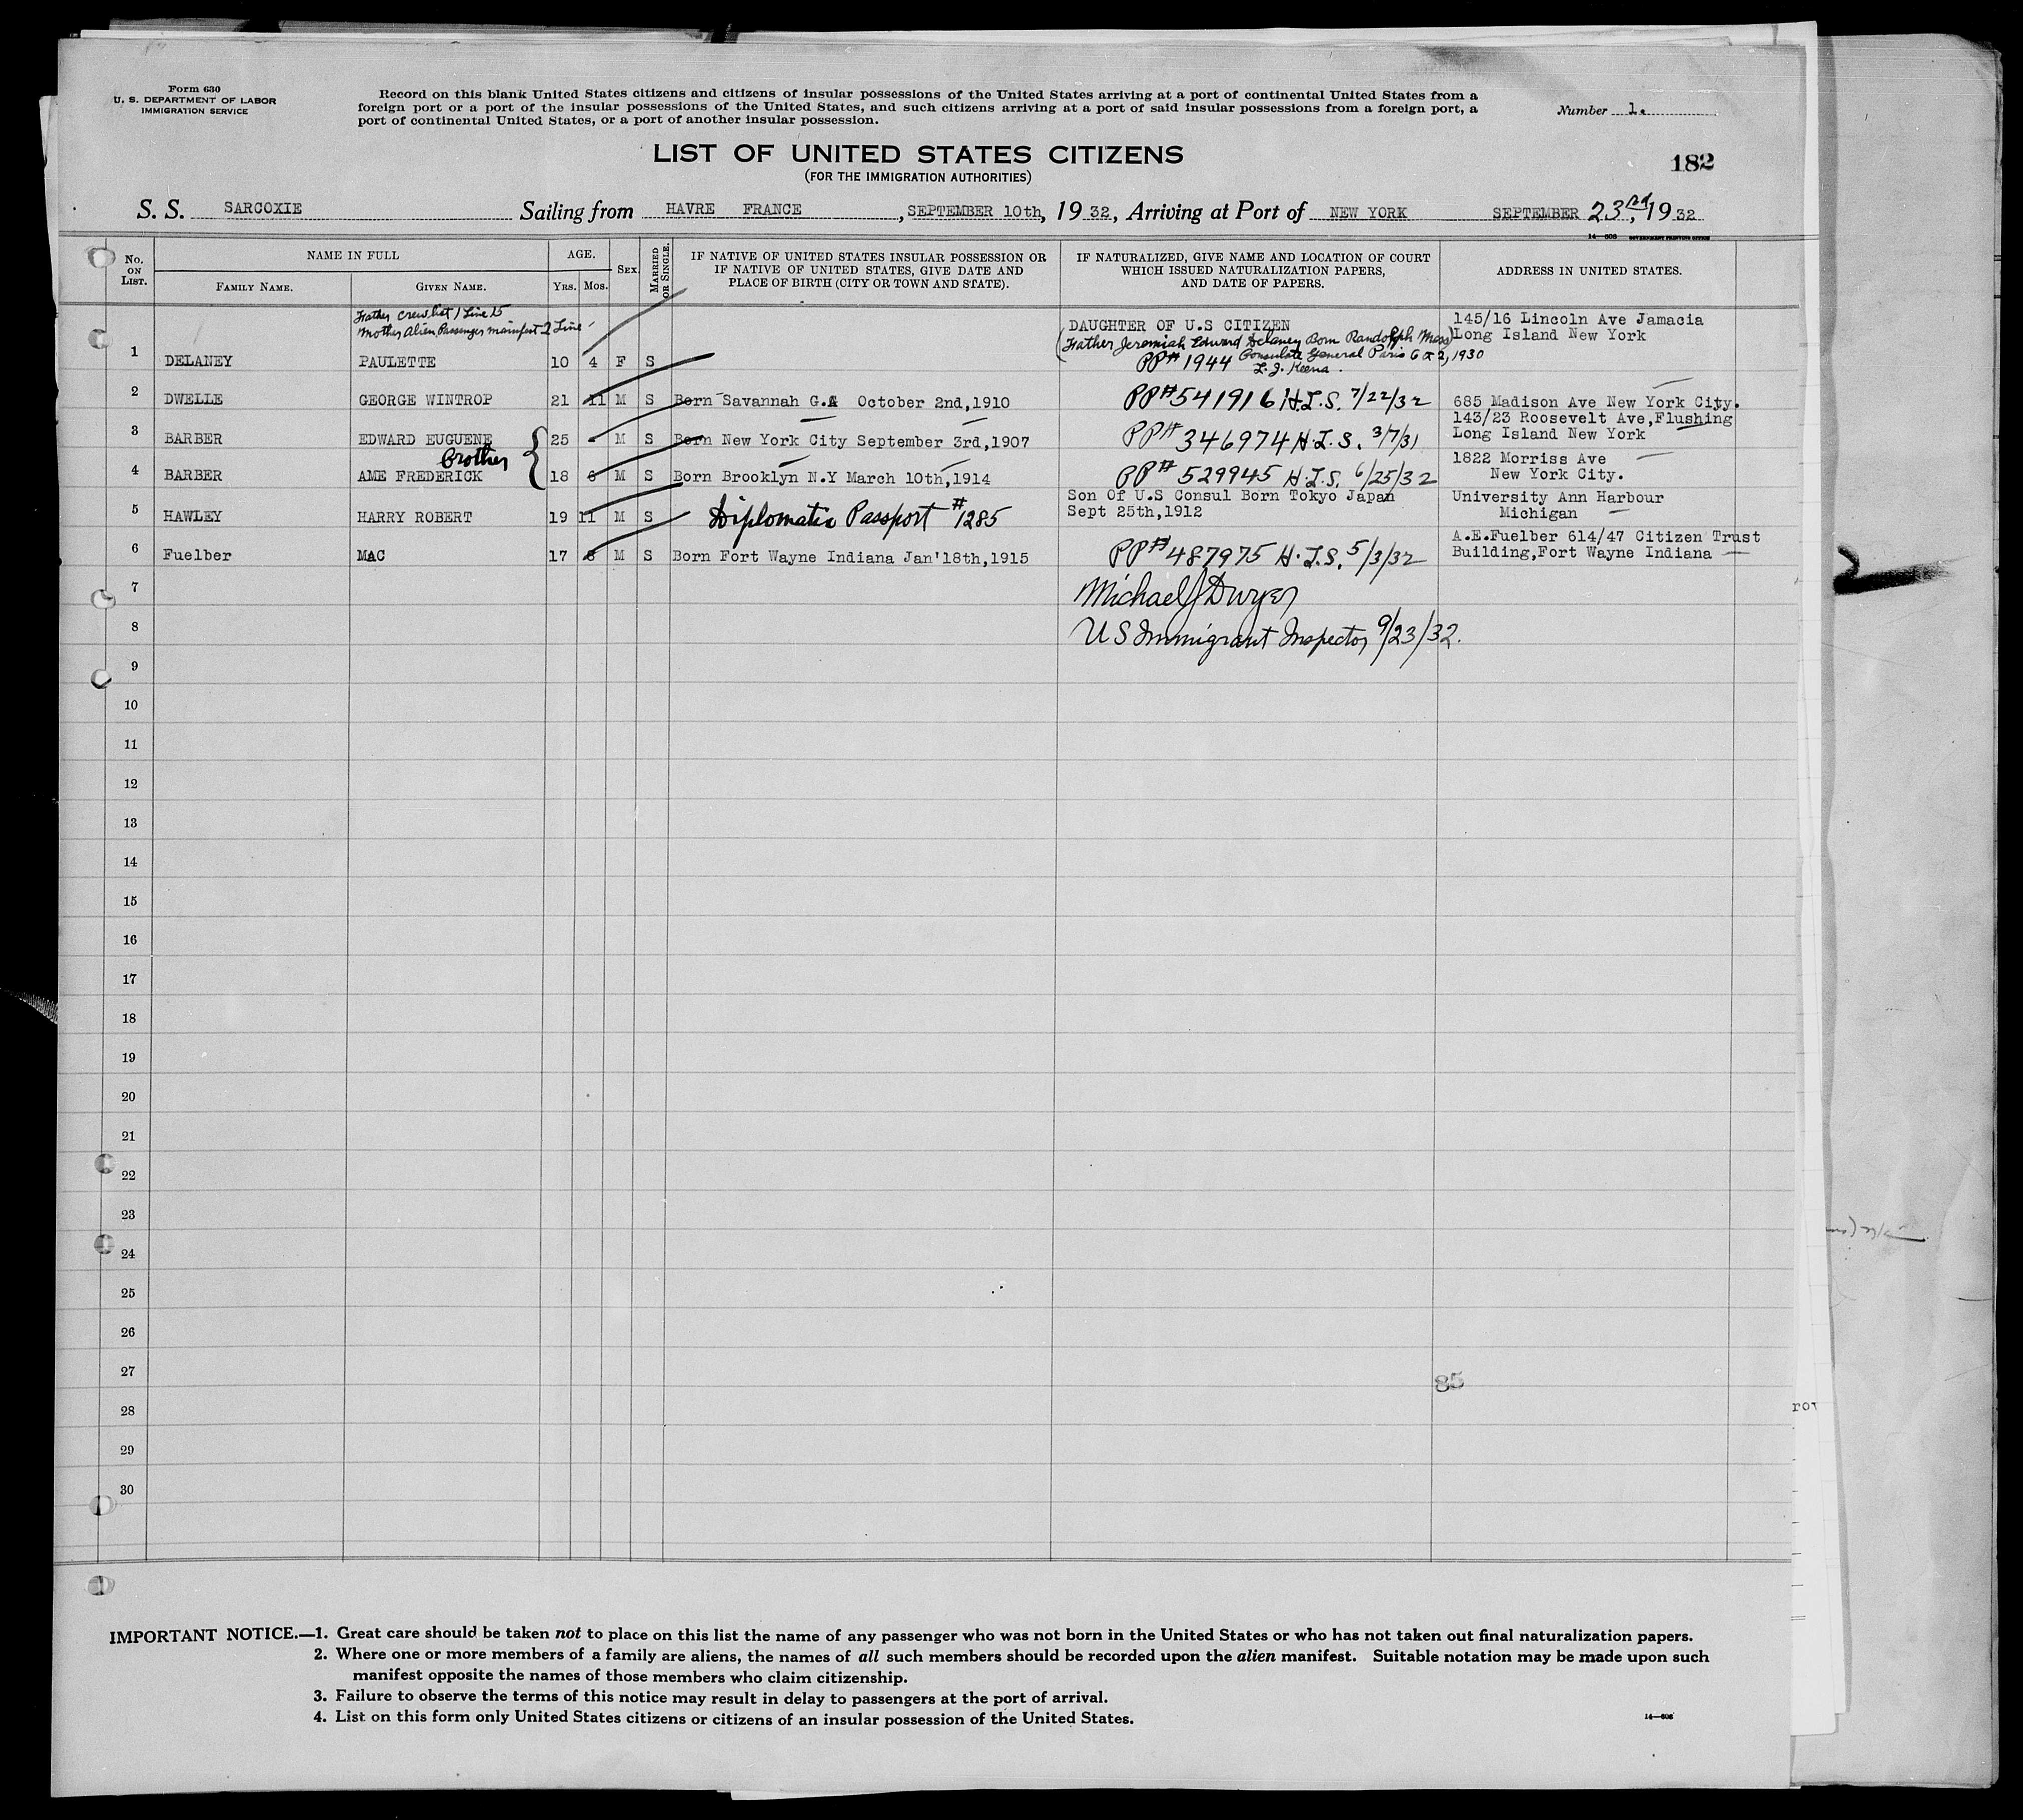 Form 630
U. S. DEPARTMENT OF LABOR
IMMIGRATION SERVICE
Record on this blank United States citizens and citizens of insular possessions of the United States arriving at a port of continental United States from a
foreign port or a port of the insular possessions of the United States, and such citizens arriving at a port of said insular possessions from a foreign port, a
port of continental United States, or a port of another insular possession.
Number 1.
LIST OF UNITED STATES CITIZENS
(FOR THE IMMIGRATION AUTHORITIES)
182
S. S. SARCOXIE Sailing from HAVRE FRANCE, SEPTEMBER 10th, 1932, Arriving at Port of NEW YORK SEPTEMBER 23rd, 1932
14—608 GOVERNMENT PRINTING OFFICE
No. ON LIST. NAME IN FULL AGE. SEX MARRIED OR SINGLE. IF NATIVE OF UNITED STATES INSULAR POSSESSION OR IF NATIVE OF UNITED STATES, GIVE DATE AND PLACE OF BIRTH (CITY OR TOWN AND STATE). IF NATURALIZED, GIVE NAME AND LOCATION OF COURT WHICH ISSUED NATURALIZATION PAPERS, AND DATE OF PAPERS. ADDRESS IN UNITED STATES.
FAMILY NAME. GIVEN NAME. YRS. MOS.
Father crew list 1 Line 15
Mother Alien Passenger manifest 2 Line 1
DAUGHTER OF U.S CITIZEN
145/16 Lincoln Ave Jamacia
Long Island New York
(Father Jeremiah Edward Delaney Born Randolph Mass)
1 DELANEY PAULETTE 10 4 F S PP# 1944 Consulate General Paris 1930
L. J. Keena.
2 DWELLE GEORGE WINTROP 21 11 M S Born Savannah G.A October 2nd,1910 PP# 541916 H.L.S. 7/22/32 685 Madison Ave New York City.
3 BARBER EDWARD EUGUENE 25 M S Born New York City September 3rd,1907 PP# 346974 H.L.S. 3/7/31 143/23 Roosevelt Ave,Flushing
Long Island New York
Brother
4 BARBER AME FREDERICK 18 6 M S Born Brooklyn N.Y March 10th,1914 PP# 529945 H.L.S. 6/25/32 1822 Morriss Ave
New York City.
5 HAWLEY HARRY ROBERT 19 11 M S Diplomatic Passport #1285 Son Of U.S Consul Born Tokyo Japan
Sept 25th,1912
University Ann Harbour
Michigan
6 Fuelber MAC 17 8 M S Born Fort Wayne Indiana Jan'18th,1915 PP# 487975 H.L.S. 5/3/32 A.E.Fuelber 614/47 Citizen Trust
Building,Fort Wayne Indiana
7 Michael J Dwyer
8 US Immigrant Inspector 9/23/32.
9
10
11
12
13
14
15
16
17
18
19
20
21
22
23
24
25
26
27
85
28
29
30
IMPORTANT NOTICE.—1. Great care should be taken not to place on this list the name of any passenger who was not born in the United States or who has not taken out final naturalization papers.
2. Where one or more members of a family are aliens, the names of all such members should be recorded upon the alien manifest. Suitable notation may be made upon such
manifest opposite the names of those members who claim citizenship.
3. Failure to observe the terms of this notice may result in delay to passengers at the port of arrival.
4. List on this form only United States citizens or citizens of an insular possession of the United States.
14—608